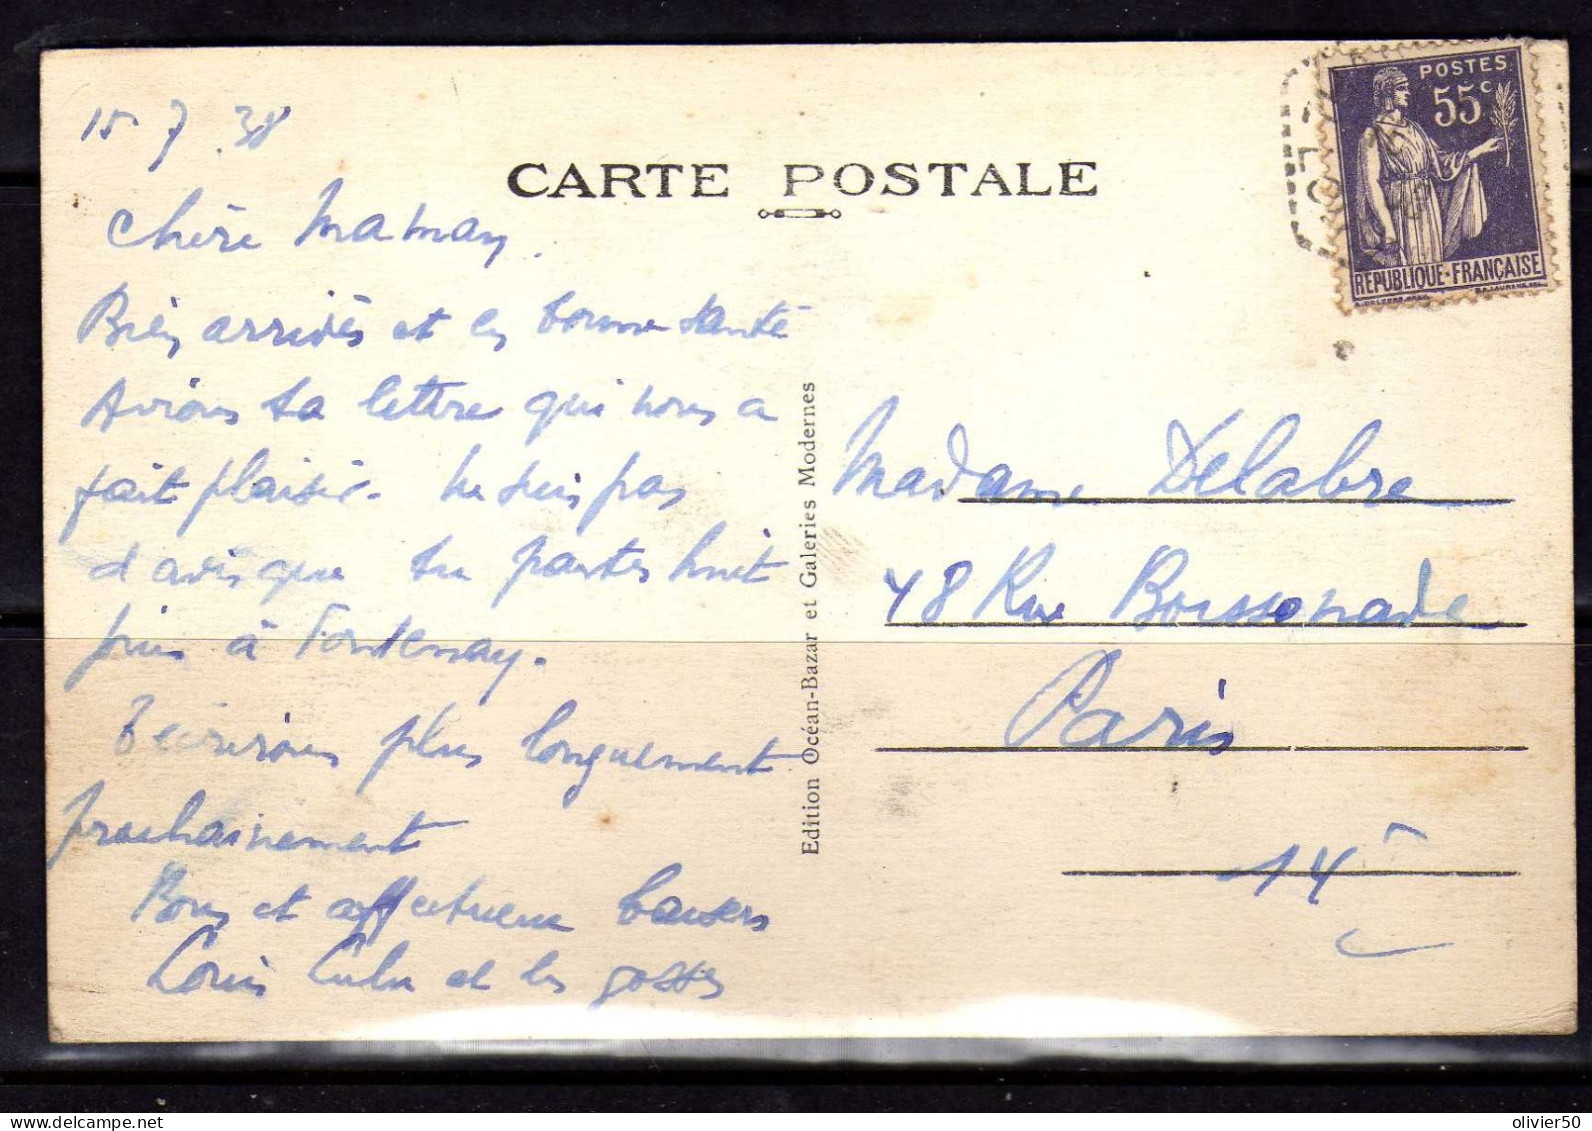 15.7.38
CARTE POSTALE
POSTES
55c
REPUBLIQUE-FRANÇAISE
Chère Maman,
Bien arrivés et en bonne santé
Avions ta lettre qui nous a
fait plaisir. Ne suis pas
d'avis que tu partes huit
à Fontenay.
T'écrirons plus longuement
prochainement
Bons et affectueux baisers
Louis Lulu et les gosses
Edition Océan-Bazar et Galeries Modernes
Madame Delabre
48 Rue Boissonade
Paris
14e
olivier50